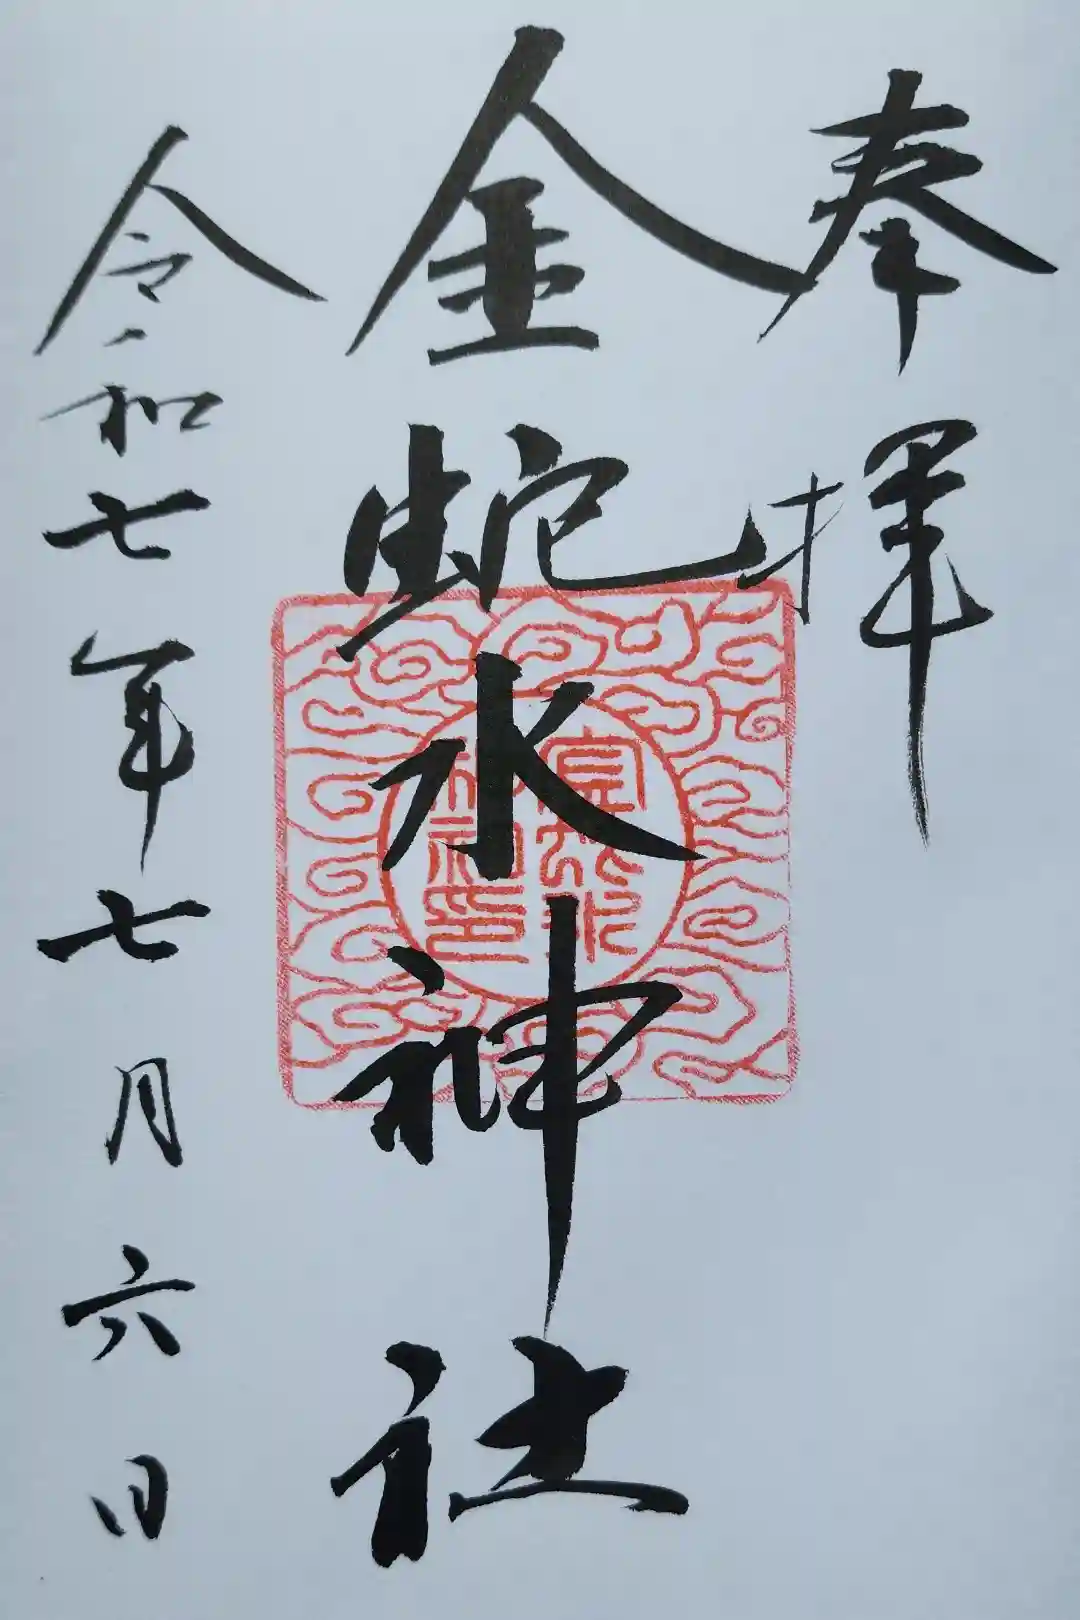 奉拝
金蛇水神社
令和七年七月六日